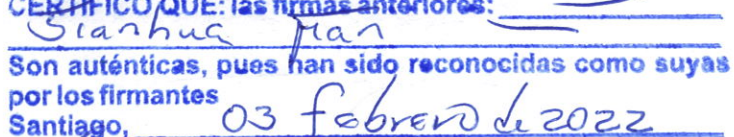 CERTIFICO QUE: las firmas anteriores:
Jianhua Han
Son auténticas, pues han sido reconocidas como suyas
por los firmantes
Santiago, 03 febrero de 2022